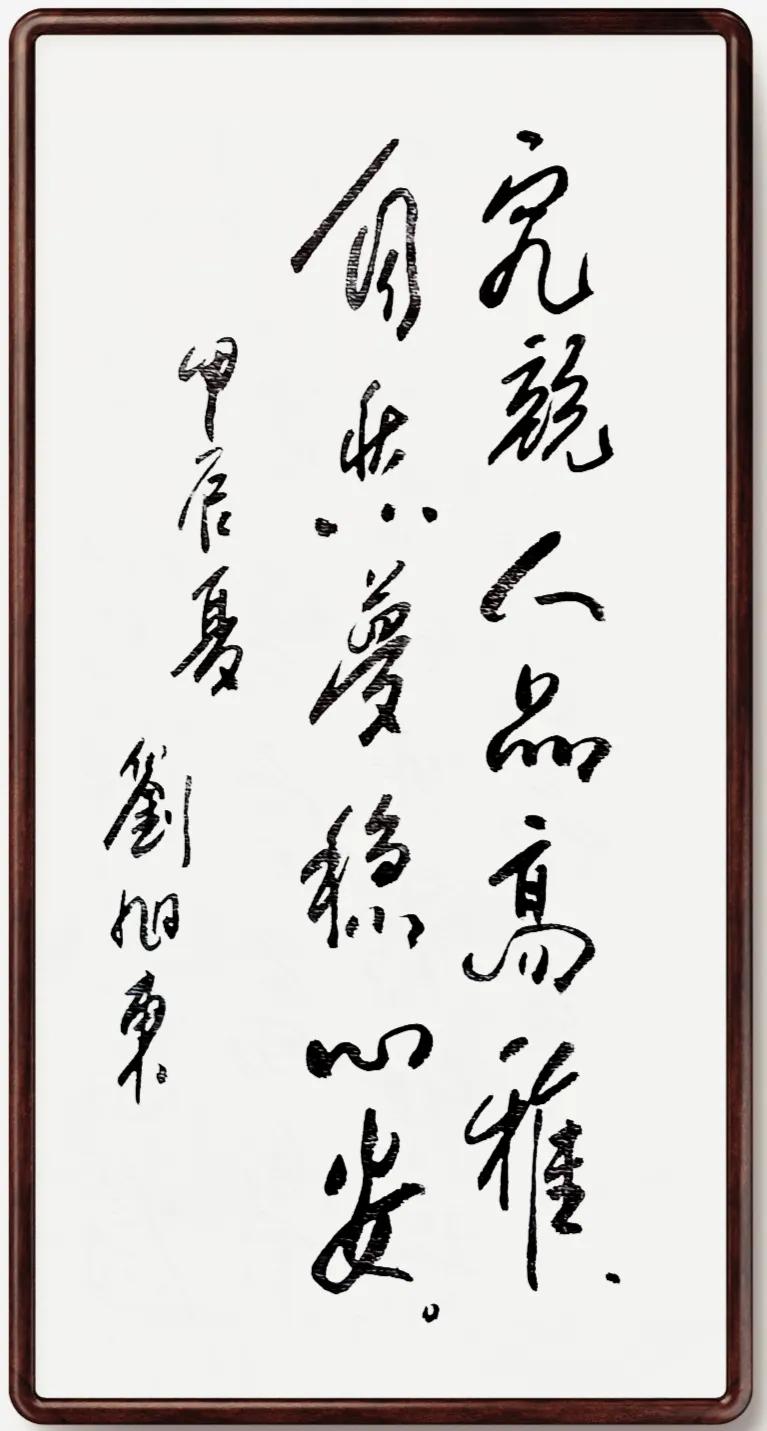 究竟人品高雅.
自然梦稳心安。
甲辰夏
劉旭東